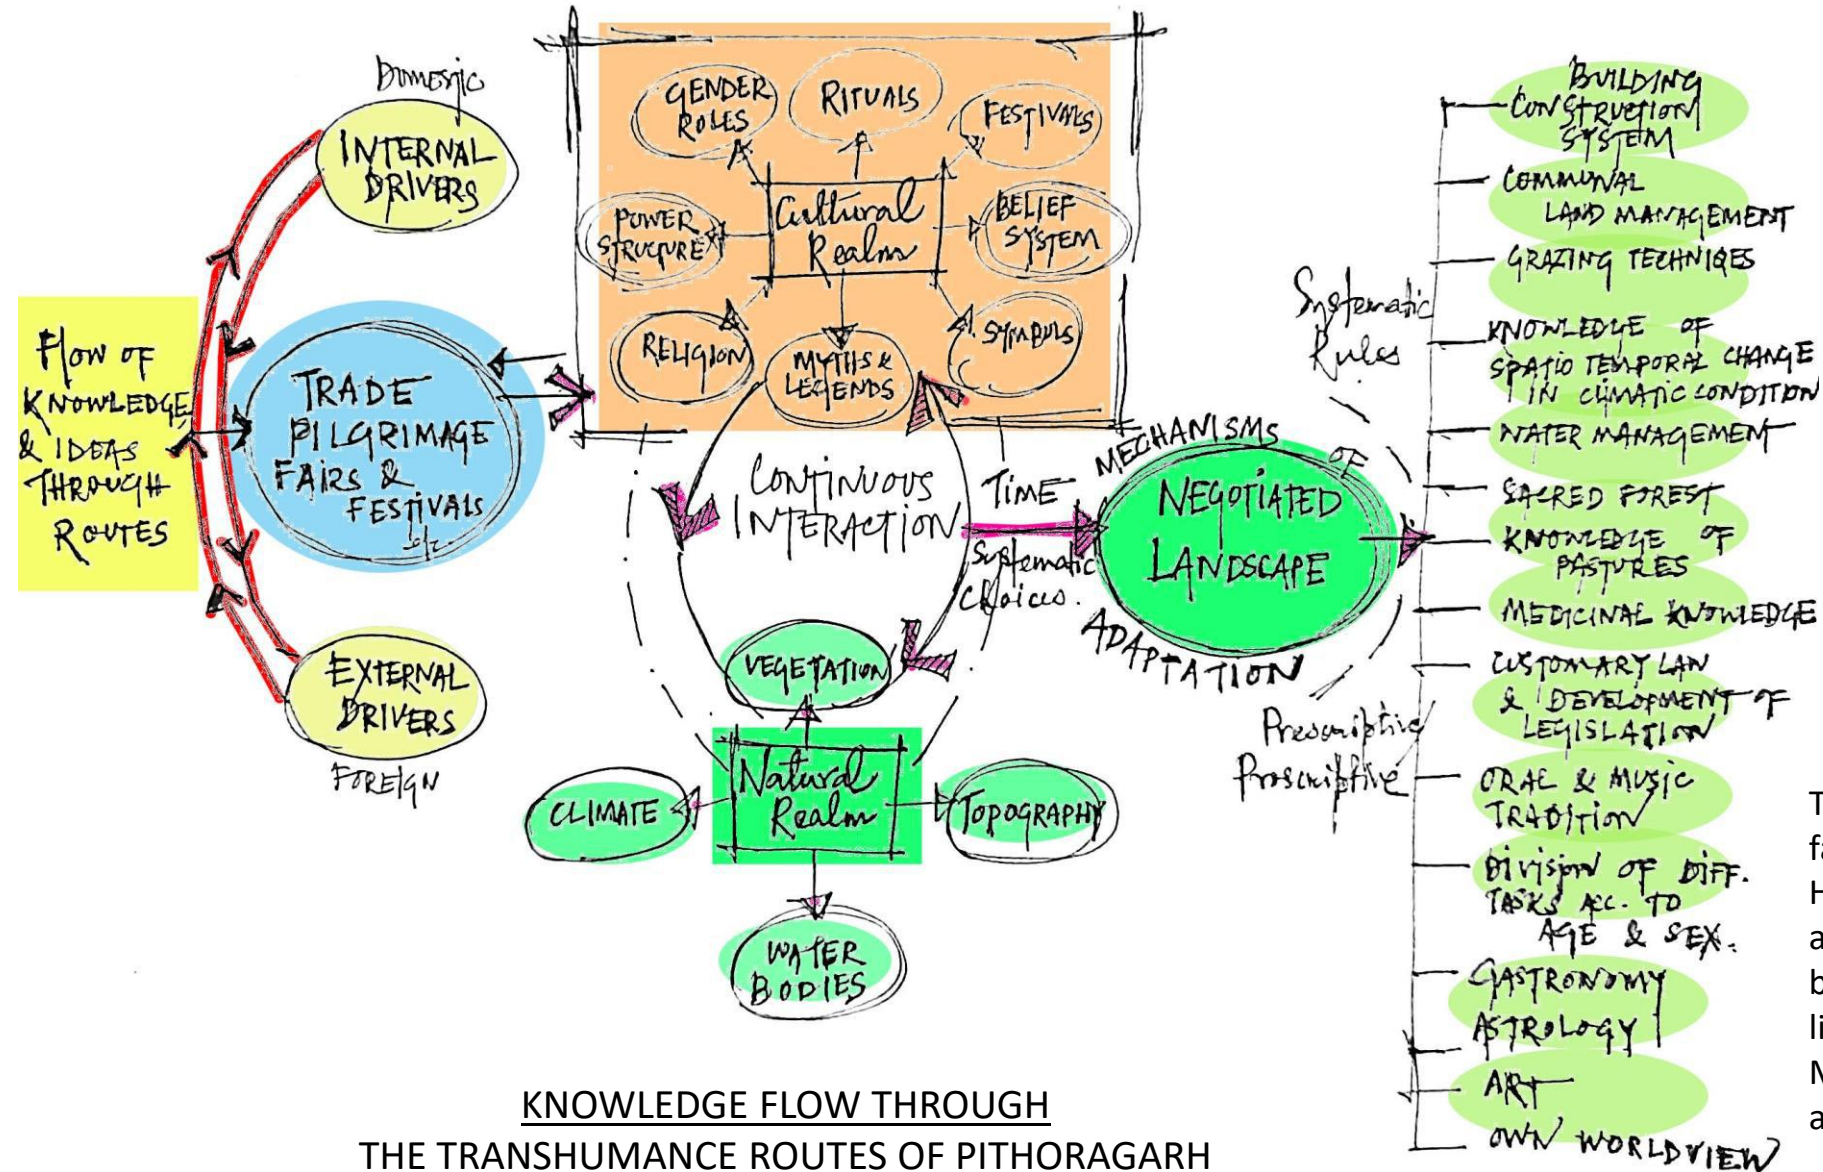 Domestic
INTERNAL
DRIVERS
FLOW OF
KNOWLEDGE
& IDEAS
THROUGH
ROUTES
TRADE
PILGRIMAGE
FAIRS &
FESTIVALS
etc
EXTERNAL
DRIVERS
FOREIGN
GENDER
ROLES
RITUALS
FESTIVALS
POWER
STRUCTURE
Cultural
Realm
BELIEF
SYSTEM
RELIGION
MYTHS &
LEGENDS
SYMBOLS
CONTINUOUS
INTERACTION
TIME
Systematic
Choices.
MECHANISMS OF
NEGOTIATED
LANDSCAPE
ADAPTATION
VEGETATION
Natural
Realm
CLIMATE
TOPOGRAPHY
WATER
BODIES
Systematic
Rules
Prescriptive
Proscriptive
BUILDING
CONSTRUCTION
SYSTEM
COMMUNAL
LAND MANAGEMENT
GRAZING TECHNIQES
KNOWLEDGE OF
SPATIO TEMPORAL CHANGE
IN CLIMATIC CONDITION
WATER MANAGEMENT
SACRED FOREST
KNOWLEDGE OF
PASTURES
MEDICINAL KNOWLEDGE
CUSTOMARY LAW
& DEVELOPMENT OF
LEGISLATION
ORAL & MUSIC
TRADITION
DIVISION OF DIFF.
TASKS ACC. TO
AGE & SEX.
GASTRONOMY
ASTROLOGY
ART
OWN WORLDVIEW
KNOWLEDGE FLOW THROUGH
THE TRANSHUMANCE ROUTES OF PITHORAGARH